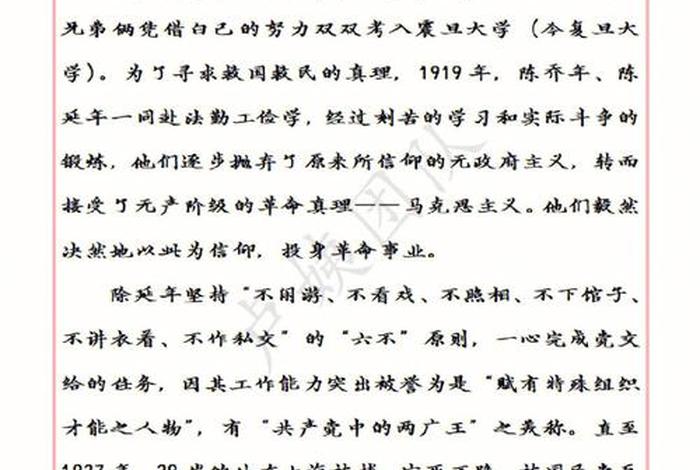 兄弟俩凭借自己的努力双双考入震旦大学（今复旦大
学）。为了寻求救国救民的真理，1919年，陈乔年、陈
延年一同赴法勤工俭学，经过刻苦的学习和实际斗争的
锻炼，他们逐步抛弃了原来所信仰的无政府主义，转而
接受了无产阶级的革命真理——马克思主义。他们毅然
决然地以此为信仰，投身革命事业。
陈延年坚持“不闲游、不看戏、不照相、不下馆子、
不讲衣着、不作私交”的“六不”原则，一心完成党交
给的任务，因其工作能力突出被誉为是“赋有特殊组织
才能之人物”，有“共产党中的两广王”之美称。直至
1927年，29岁的
卢姨团队